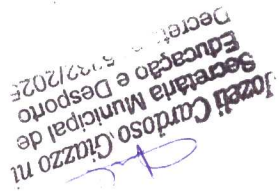 Jozeli Cardoso Giazzo ni
Secretária Municipal de
Educação e Desporto
Decret 5132/2025